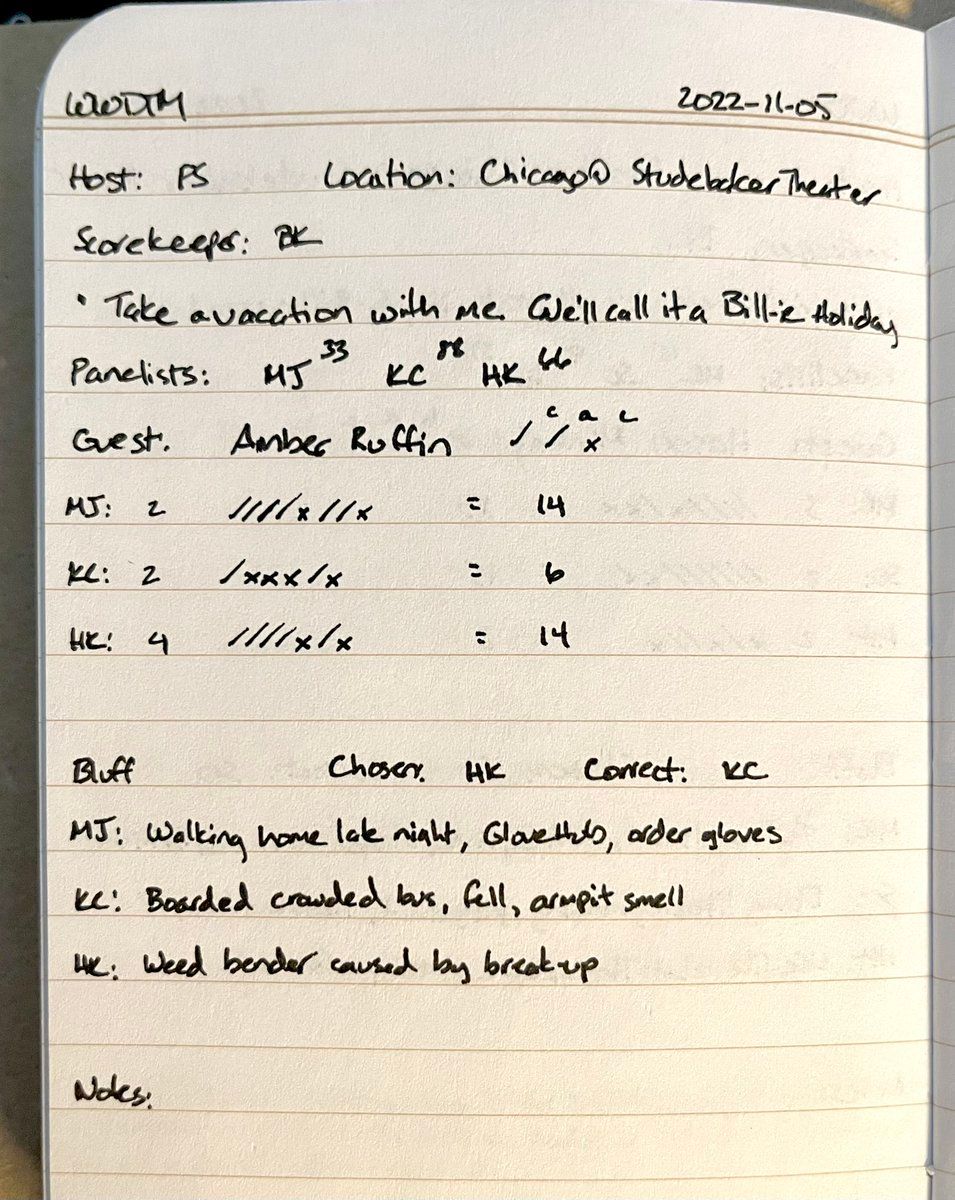 WWDTM 2022-11-05
Host: PS Location: Chicago @ Studebaker Theater
Scorekeeper: BK
• Take a vacation with me. We'll call it a Bill-ie Holiday
Panelists: MJ 33 KC 88 HK 66
Guest. Amber Ruffin / / x c a c
MJ: 2 ////x//x = 14
KC: 2 /xxx/x = 6
HK: 4 ////x/x = 14
Bluff Chosen: HK Correct: KC
MJ: Walking home late night, GloveHub, order gloves
KC: Boarded crowded bus, fell, armpit smell
HK: Weed bender caused by break-up
Notes: